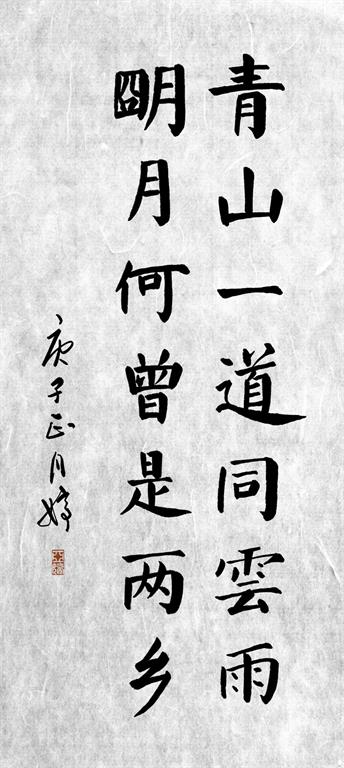 青山一道同雲雨
朙月何曾是两乡
庚子正月婷